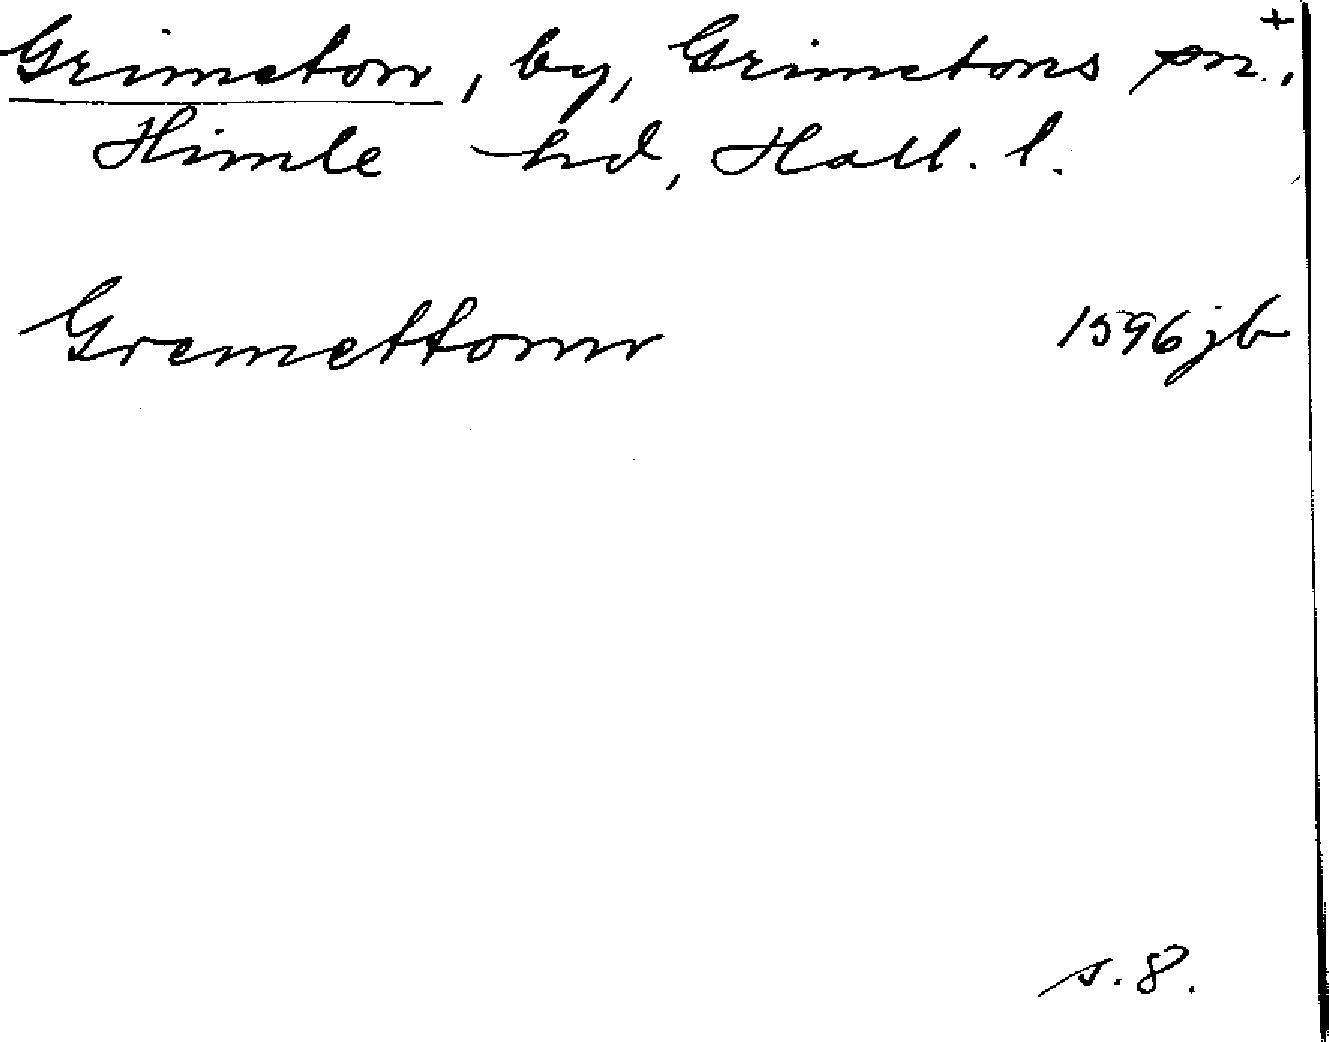 Grimeton, by, Grimetons sn.+,
Himle hd, Hall. l.
Gremettonn 1596 jb
s. 8.